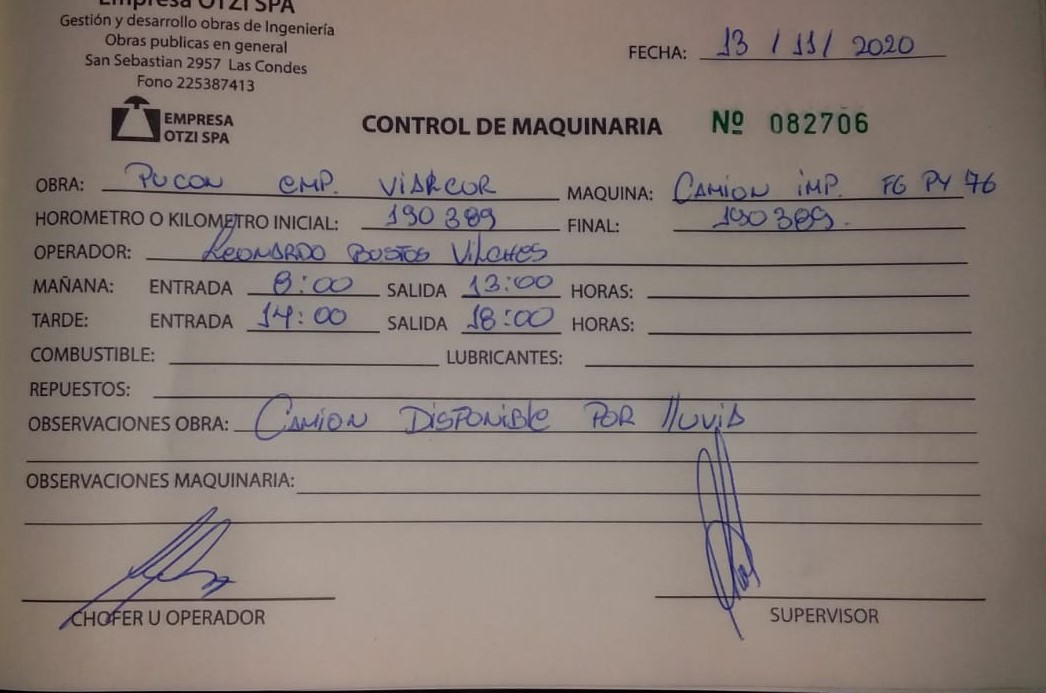 Empresa OTZI SPA
Gestión y desarrollo obras de Ingeniería
Obras publicas en general
San Sebastian 2957 Las Condes
Fono 225387413
FECHA: 13 / 11 / 2020
EMPRESA
OTZI SPA
CONTROL DE MAQUINARIA Nº 082706
OBRA: PUCON EMP. VIARCUR MAQUINA: CAMION IMP. FG PY 76
HOROMETRO O KILOMETRO INICIAL: 190 389 FINAL: 190 389.
OPERADOR: LEONARDO BUSTOS VILCHES
MAÑANA: ENTRADA 8:00 SALIDA 13:00 HORAS:
TARDE: ENTRADA 14:00 SALIDA 18:00 HORAS:
COMBUSTIBLE: LUBRICANTES:
REPUESTOS:
OBSERVACIONES OBRA: CAMION DISPONIBLE POR lluviA
OBSERVACIONES MAQUINARIA:
CHOFER U OPERADOR
SUPERVISOR